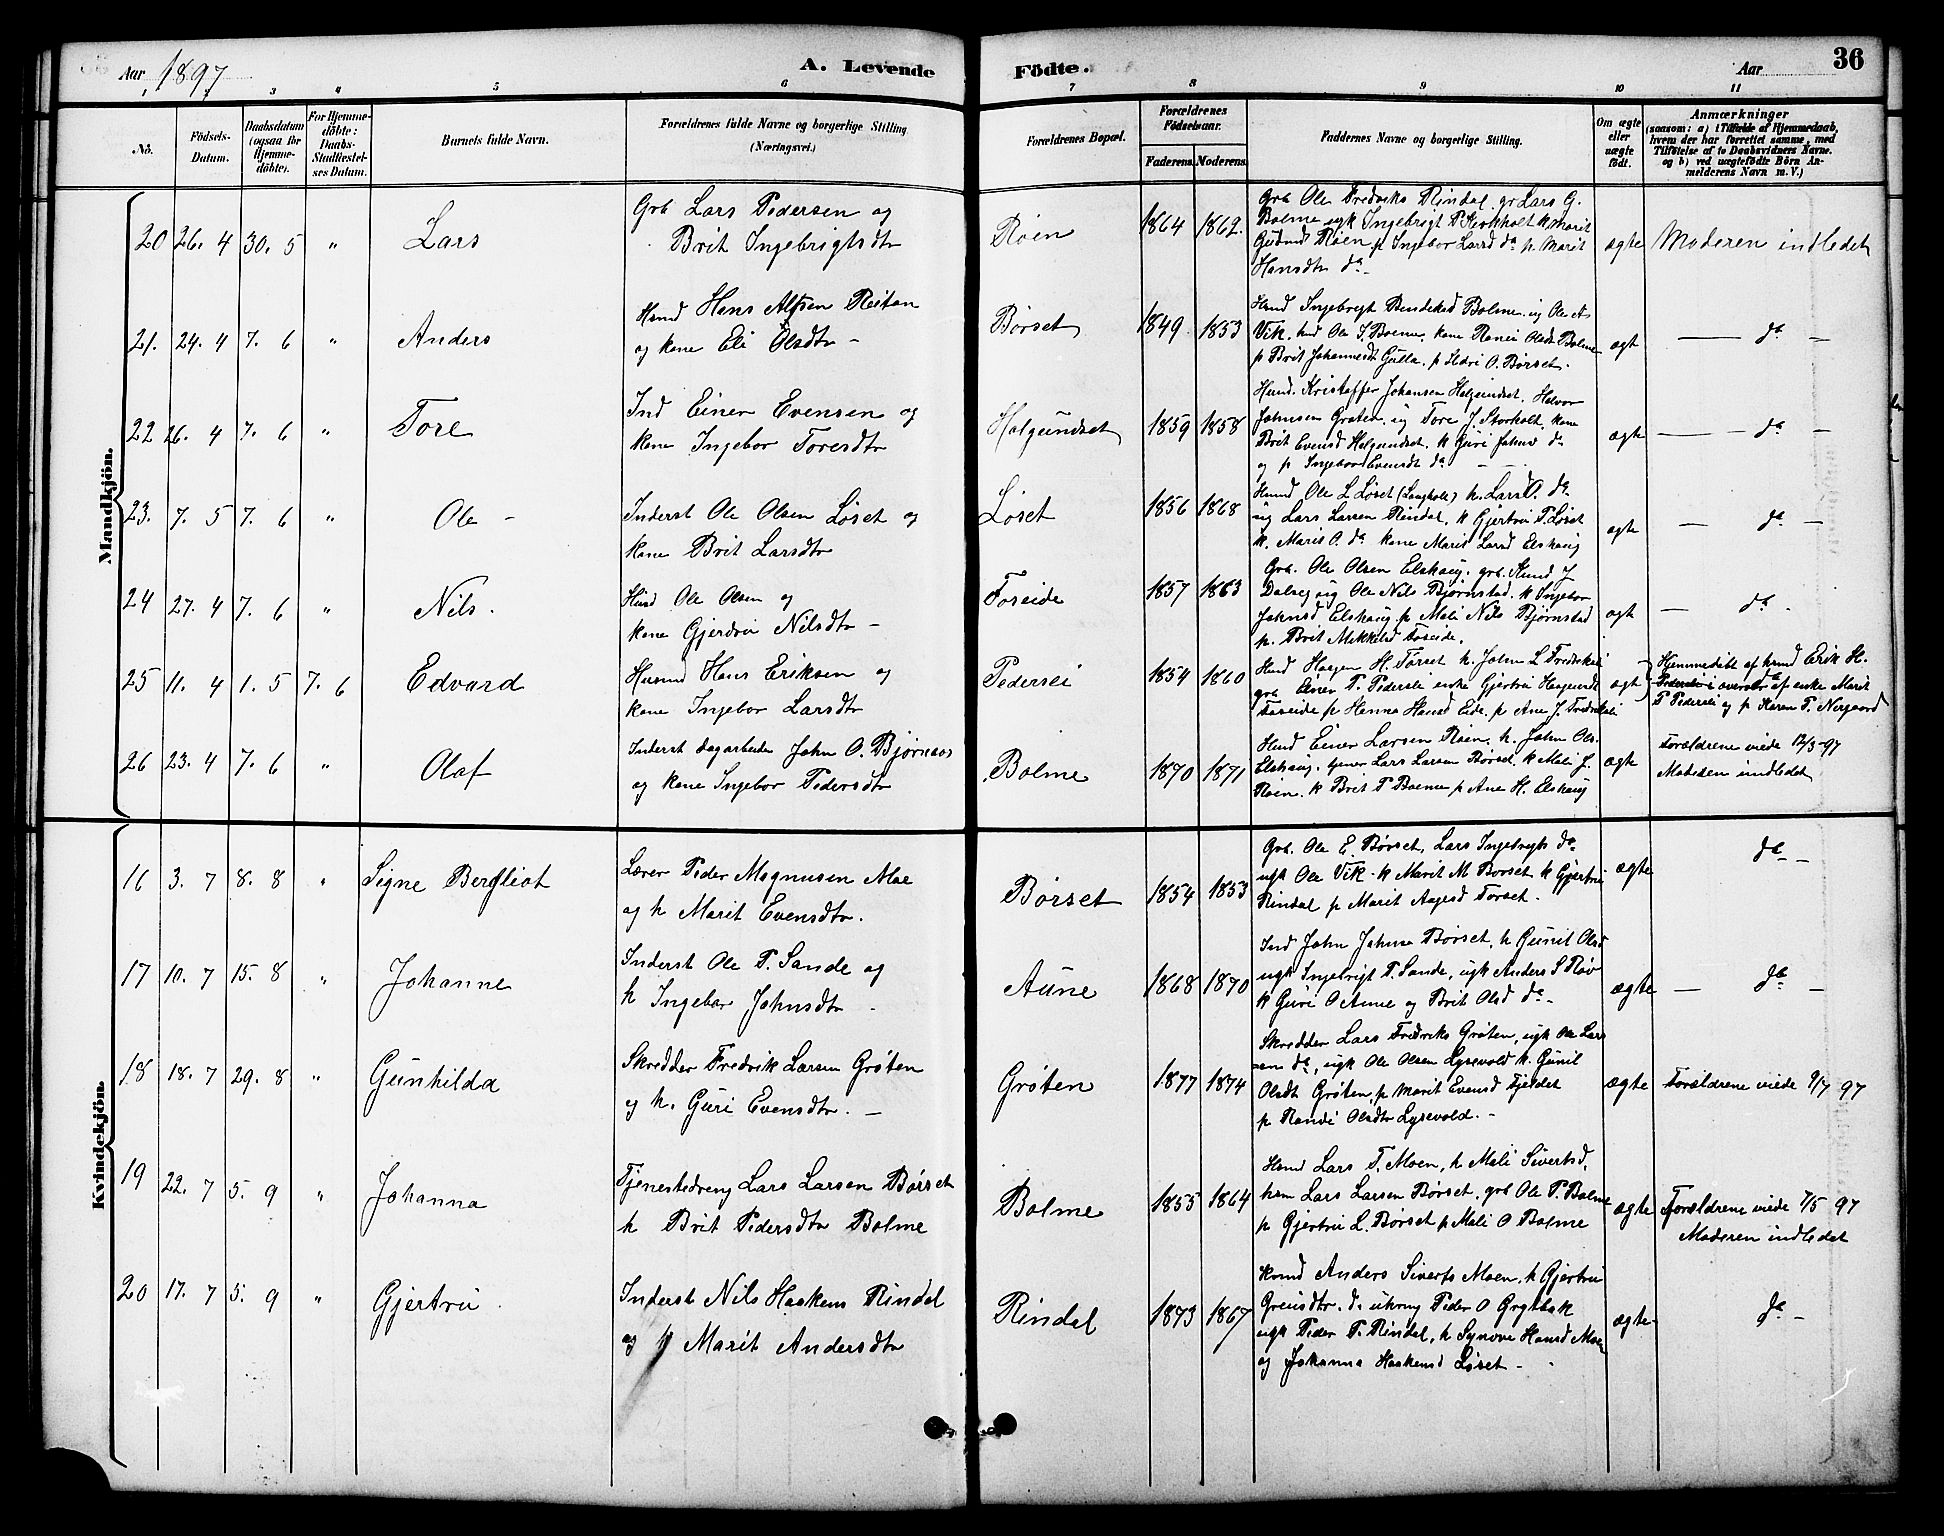 Aar 1897
A. Levende Födte.
Aar
36
1 2 3 4 5 6 7 8 9 10 11
No.
Födsels-Datum.
Daabsdatum (ogsaa for Hjemme-döbte).
For Hjemme-döbte: Daabs-Stadfæstel-ses Datum.
Barnets fulde Navn.
Forældrenes fulde Navne og borgerlige Stilling
(Næringsvei.)
Forældrenes Bopæl.
Forældrenes Födselsaar.
Faderens. Moderens.
Faddernes Navne og borgerlige Stilling.
Om ægte eller uægte födt.
Anmærkninger
(saasom: a) i Tilfælde af Hjemmedaab, hvem der har forrettet samme, med Tilföielse af to Daabsvidners Navne. og b) ved uægtefödte Börn An-melderens Navn m. V.)
Mandkjön.
20 26. 4 30. 5 " Lars
Grb Lars Pedersen og
Brit Ingebrigtsdtr
Røen 1864 1862.
Grb Ole Fredriks Rindal, gr Lars G.
Bolme ugk Ingebrigt P Storholt k Marit
Gudmds Røen p Ingebor Larsd do p. Marit
Hansdtr do -
ægte Moderen indledet
21. 24. 4 7. 6 " Anders
Hmd Hans Alfsen Reitan
og kone Eli Olsdtr -
Børset 1849 1853
Hmd Ingebregt Bendiksd Bolme. ug Ole A
Vik. hmd Ole S. Bolme, kone Ranei Olsdt Bolme
p Brit Johannesdt Gulla. p Sldri O. Børset.
ægt — do —
22 26. 4 7. 6 " Tore
Ind Einer Evensen og
kone Ingebor Toresdtr
Halgundset 1859 1858
Husmd. Kristoffer Johansen Halgundset, Halvor
Johnsen Grøten. ug Tore J. Storholt, kone
Brit Evensd Halgundset, k Guri Johns do
og p Ingebor Evensdt do
ægte — do —
23. 7. 5 7. 6 " Ole -
Inderst Ole Olsen Løset og
kone Brit Larsdtr
Løset 1856 1868
Husmd Ole L Løset (Langholt) h. Lars O. do
ug Lars Larsen Rindal, k Gjertru T. Løset
k. Marit O. do kone Marit Larsd Elshaug
ægte — do —
24 27. 4 7. 6 " Nils.
Husd Ole Olsen og
kone Gjerdru Nilsdtr -
Foseide 1857 1863
Grb. Ole Olsen Elshaug. grb. Knud J
Dalseg ug Ole Nils Bjørnstad. k Ingebor
Johnsd Elshaug. p Mali Nils Bjørnstad
p. Brit Mikkelsd Foseide.
ægt — do -
25 11. 4 1. 5 7. 6 Edvard
Husmd Hans Eriksen og
kone Ingebor Larsdtr
Pedersli 1854 1860
Hmd Haagen H. Tørset h. John L Fredriksli
grb Einer P. Pedersli enke Gjertru Haagensdt
Foseide p Hanna Hansd Eide, p Ane J. Fredriksli
ægt Hjemmedøbt af hmd Erik H.
Pedersli i overvær af enke Marit
P Pedersli og p Karen P. Nergaard
26 23. 4 7. 6 " Olaf
Inderst dagarbeider John O. Bjørnaas
og kone Ingebor Pedersdtr
Bolme 1870 1871
Hmd Einer Larsen Røen, h. John Ols.
Elshaug, tjener Lars Larsen Børset, k Mali J.
Røen. k Brit P Bolme p Ane H. Elshaug
ægte Forældrene viede 12/3-97
Moderen indledet
Kvindekjön.
16 3. 7 8. 8 " Signe Bergliot
Lærer Peder Magnusen Moe
og h Marit Evensdtr.
Børset 1854 1853
Grb. Ole E. Børset, Lars Ingebrigts do
ugk Ole Vik - k Marit M Børset k Gjertru
Rindal p Marit Aagesd Torset.
ægte do -
17 10. 7 15. 8 " Johanne
Inderst Ole P. Sande og
h Ingebor Johnsdtr -
Aune 1868 1870
Ind John Johnsa Børset, h Gunil Olsd
ugk Ingebrigt P. Sande, ugk Anders S Røv
k Guri O Aune og Brit Olsd do -
ægte — do —
18 18. 7 29. 8 " Gunhilda
Skredder Fredrik Larsen Grøten
og h. Guri Evensdtr. -
Grøten 1877 1874
Skredder Lars Fredriks Grøten, ugk Ole Lars
en do, ugk Ole Olsen Lysevold k. Gunil
Olsdt Grøten, p Marit Evensd Fjeldet
p Randi Olsdtr Lysevold. -
ægte Forældrene viede 9/7 97
19 22. 7 5. 9 " Johanna
Tjenestedreng Lars Larsen Børset
h Brit Pedersdtr Bolme
Bolme 1855 1864
Hmd Lars T. Moen, h Mali Sivertsd,
hsm Lars Larsen Børset, grb Ole P. Bolme
p Gjertru L. Børset p Mali O Bolme
ægte Forældrene viede 7/5 97
Moderen indledet
20 17. 7 5. 9 " Gjertru
Inderst Nils Haakens Rindal
og h Marit Andersdtr
Rindal 1873 1867
Hsmd Anders Siverts Moen, h Gjertru
Greusdtr. do Peder O Grytbak
ugk Peder P. Rindal, h Synove Hansd Moen
og Johanna Haakensd Løset -
ægte do -